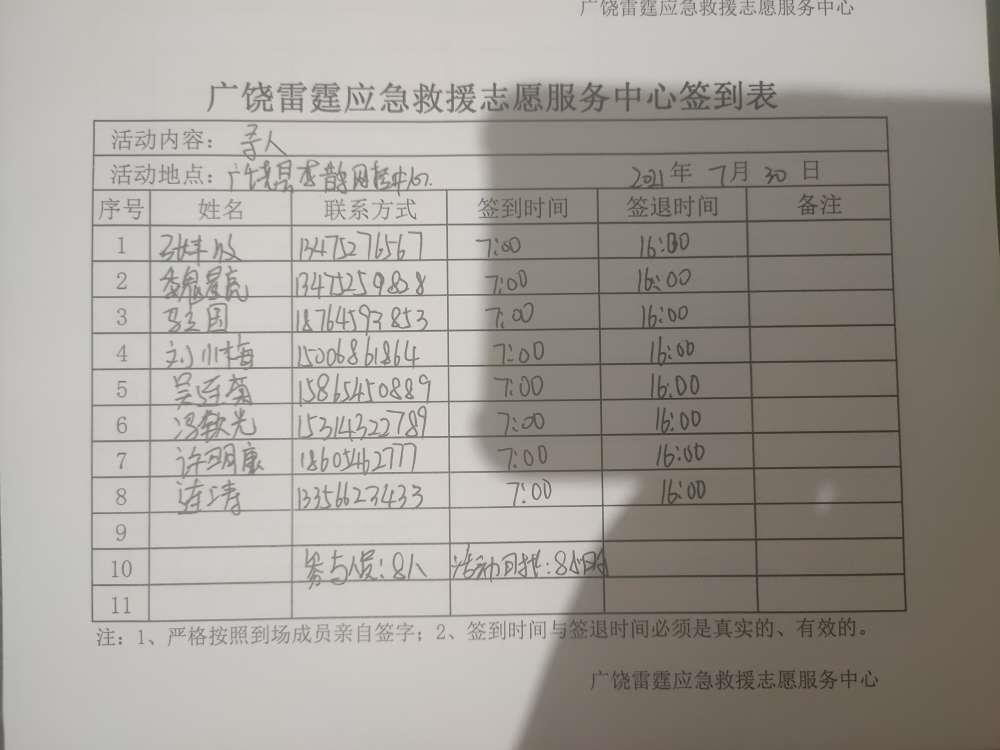 广饶雷霆应急救援志愿服务中心
广饶雷霆应急救援志愿服务中心签到表
活动内容：寻人
活动地点：广饶县李鹊 2021年 7月 30日
序号 姓名 联系方式 签到时间 签退时间 备注
1 13475276567 7:00 16:00
2 魏星亮 13475259828 7:00 16:00
3 马立国 18764593853 7:00 16:00
4 刘小梅 15006861864 7:00 16:00
5 吴连菊 15865450889 7:00 16:00
6 冯敬光 15314322789 7:00 16:00
7 许明康 18605462777 7:00 16:00
8 连涛 13356623433 7:00 16:00
9
10 参与人员：8人 活动时长：8小时
11
注：1、严格按照到场成员亲自签字；2、签到时间与签退时间必须是真实的、有效的。
广饶雷霆应急救援志愿服务中心